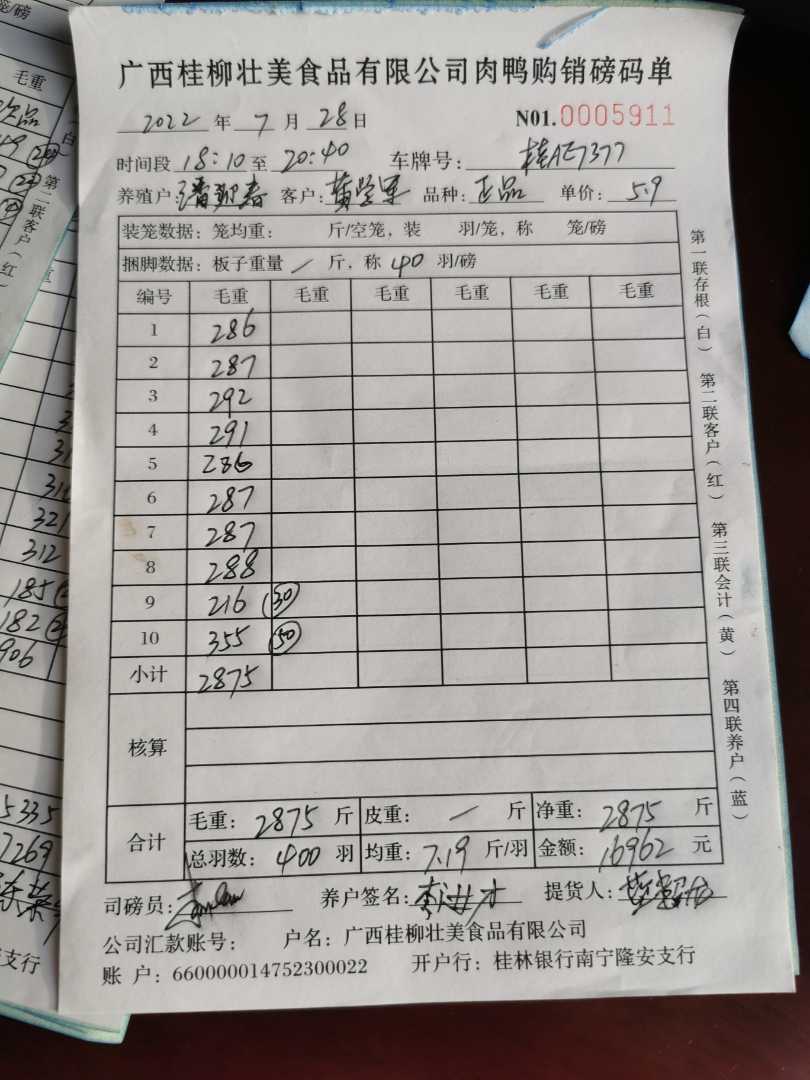 广西桂柳壮美食品有限公司肉鸭购销磅码单
2022 年 7 月 28 日 N01.0005911
时间段 18:10 至 20:40 车牌号: 桂AE7377
养殖户: 潘迎春 客户: 黄学军 品种: 正品 单价: 5.9
装笼数据: 笼均重: 斤/空笼, 装 羽/笼, 称 笼/磅
捆脚数据: 板子重量 / 斤, 称 40 羽/磅
编号 毛重 毛重 毛重 毛重 毛重 毛重
1 286
2 287
3 292
4 291
5 286
6 287
7 287
8 288
9 216 (30)
10 355 (50)
小计 2875
核算
合计 毛重: 2875 斤 皮重: / 斤 净重: 2875 斤
总羽数: 400 羽 均重: 7.19 斤/羽 金额: 16962 元
司磅员: 养户签名: 提货人:
公司汇款账号: 户名: 广西桂柳壮美食品有限公司
账 户: 660000014752300022 开户行: 桂林银行南宁隆安支行
第一联存根(白) 第二联客户(红) 第三联会计(黄) 第四联养户(蓝)
笼/磅
毛重
第二联客户(红)
321
312
185
182
906
5335
7269
支行